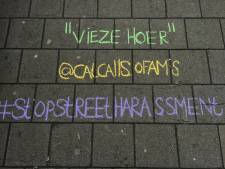 "VIEZE HOER"
@CALCALLSOFAMS
#STOPSTREETHARASSMENT